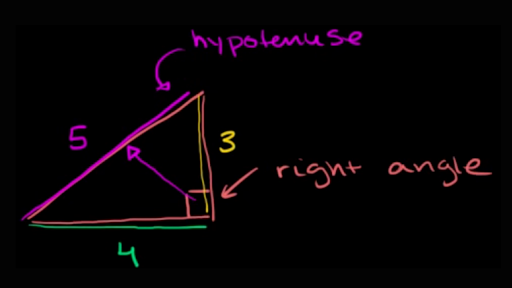 hypotenuse
5
3
right angle
4